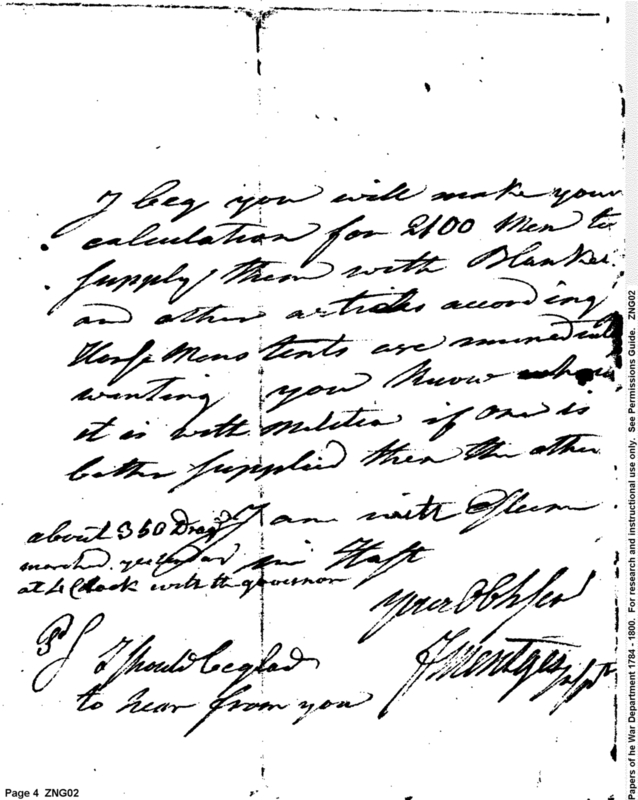 I beg you will make your
calculation for 2100 Men to
Supply them with Blanket
and other articles according
Horse Mens tents are immediat
wanting you know
it is with Militia if One is
better Supplied then the other
I am with Esteem
in Hast
about 350 Dragns
marched yesterday
at 4 Clook with the governor
your Ob Ser
F Mentges
PS I Should be glad
to hear from you
Page 4 ZNG02
Papers of he War Department 1784 - 1800. For research and instructional use only. See Permissions Guide. ZNG02